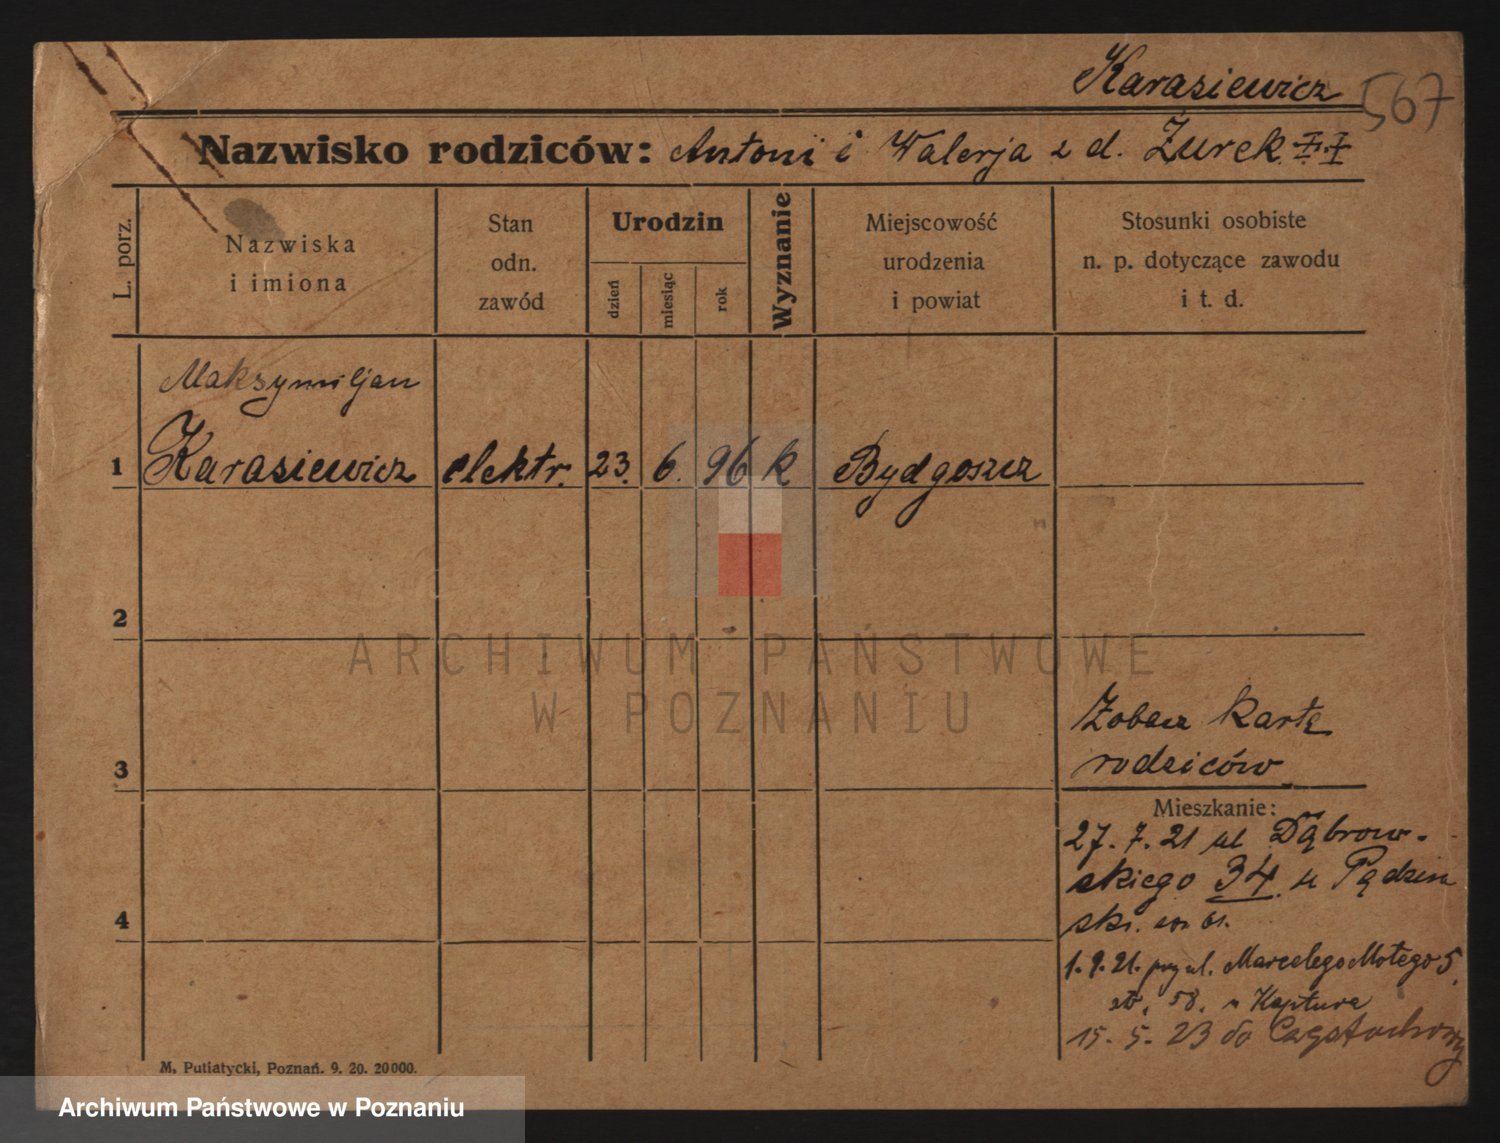 Karasiewicz
567
Nazwisko rodziców: Antoni i Walerja z d. Żurek
L. porz.
Nazwiska
i imiona
Stan
odn.
zawód
Urodzin
dzień
miesiąc
rok
Wyznanie
Miejscowość
urodzenia
i powiat
Stosunki osobiste
n. p. dotyczące zawodu
i t. d.
Maksymiljan
1 Karasiewicz elektr. 23. 6. 96 k Bydgoszcz
2
ARCHIWUM PAŃSTWOWE
W POZNANIU
Zobacz kartę
3 rodziców
Mieszkanie:
27. 7. 21 ul Dąbrow-
skiego 34
4
1. 9. 21. przy ul. Marcelego Motego 5
58. Kaptura
15. 5. 23 do Częstochowy
M. Putiatycki, Poznań. 9. 20. 20000.
Archiwum Państwowe w Poznaniu